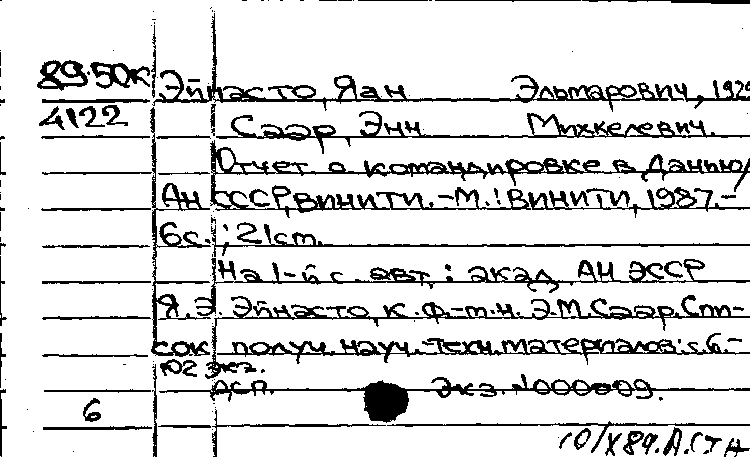 89-50к Эйнасто, Яан Эльмарович, 1929
4122 Саар, Энн Михкелевич.
Отчет о командировке в Данию/
АН СССР, ВИНИТИ. - М.: ВИНИТИ, 1987. -
6с.; 21cm.
На 1-6 с. авт.: акад. АН ЭССР
Я.Э. Эйнасто, к.ф.-т.н. Э.М. Саар. Спи-
сок получ. науч.-техн. материалов: с.6. -
102 экз.
ДСП. Экз. N000009.
6
10/X 89.